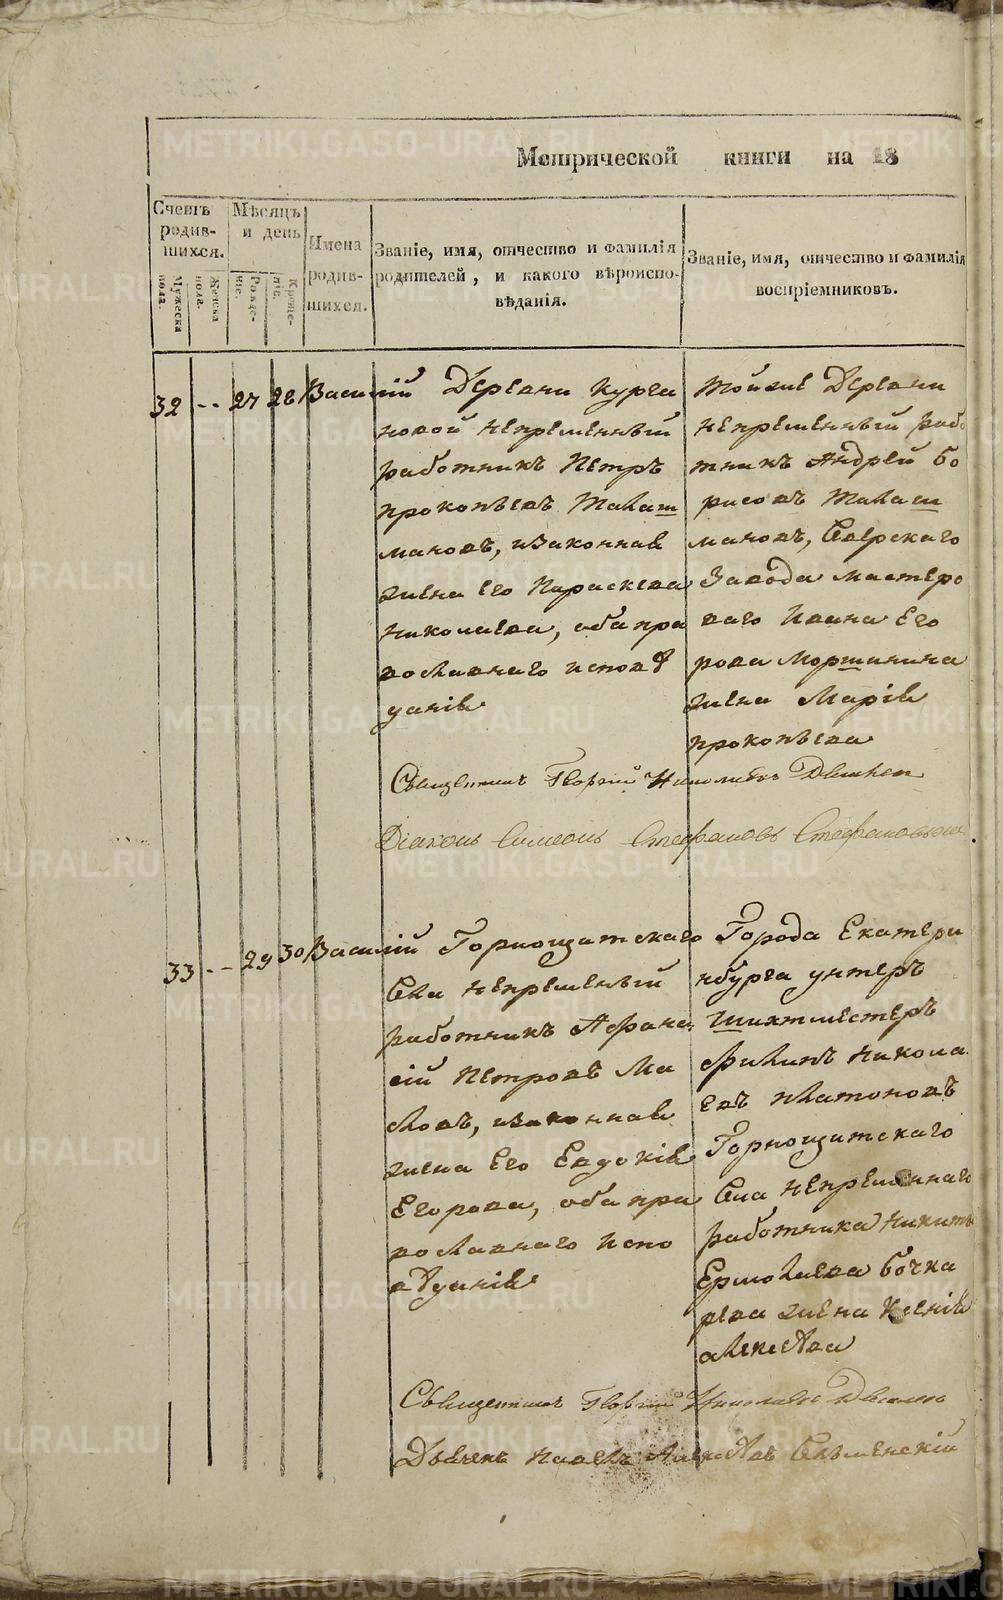 Метрической книги на 18
Счетъ родив-шихся.
Мужеска пола.
Женска пола.
Мѣсяцъ и день
Рожде-ніе.
Креще-ніе.
Имена родив-шихся.
Званіе, имя, отчество и фамилія
родителей, и какого вѣроиспо-
вѣданія.
Званіе, имя, отчество и фамилія
воспріемниковъ.
32 -- 27 28 Василій
Деревни Курга
новой непременный
работникъ Петръ
Прокопьевъ Талаш
мановъ, изаконная
жена его Параскева
Николаева, оба пра
вославнаго исповѣ
данія
Тойже Деревни
непременный рабо
тникъ Андрей Бо
рисовъ Талаш
мановъ, Сѣверскаго
Завода мастеро
ваго Ивана Его
рова Моршинина
жена Марія
Прокопьева
Священникъ Георгій Николаевъ
Діаконъ Симеонъ Стефановъ
33 -- 29 30 Василій
Горнощитскаго
Села непременный
работникъ Афана
сій Петровъ Ма
ловъ, изаконная
жена Его Евдокія
Егорова, оба пра
вославнаго испо
вѣданія
Города Екатери
нбурга унтеръ
Шихтместеръ
Филипъ Никола
евъ Платоновъ
Горнощитскаго
Села непременнаго
работника Никиты
Ермолаева Бочка
рева жена Ксенія
Алексѣева
Священникъ Георгій Николаевъ
Дьячекъ Павелъ Алексѣевъ
METRIKI.GASO-URAL.RU